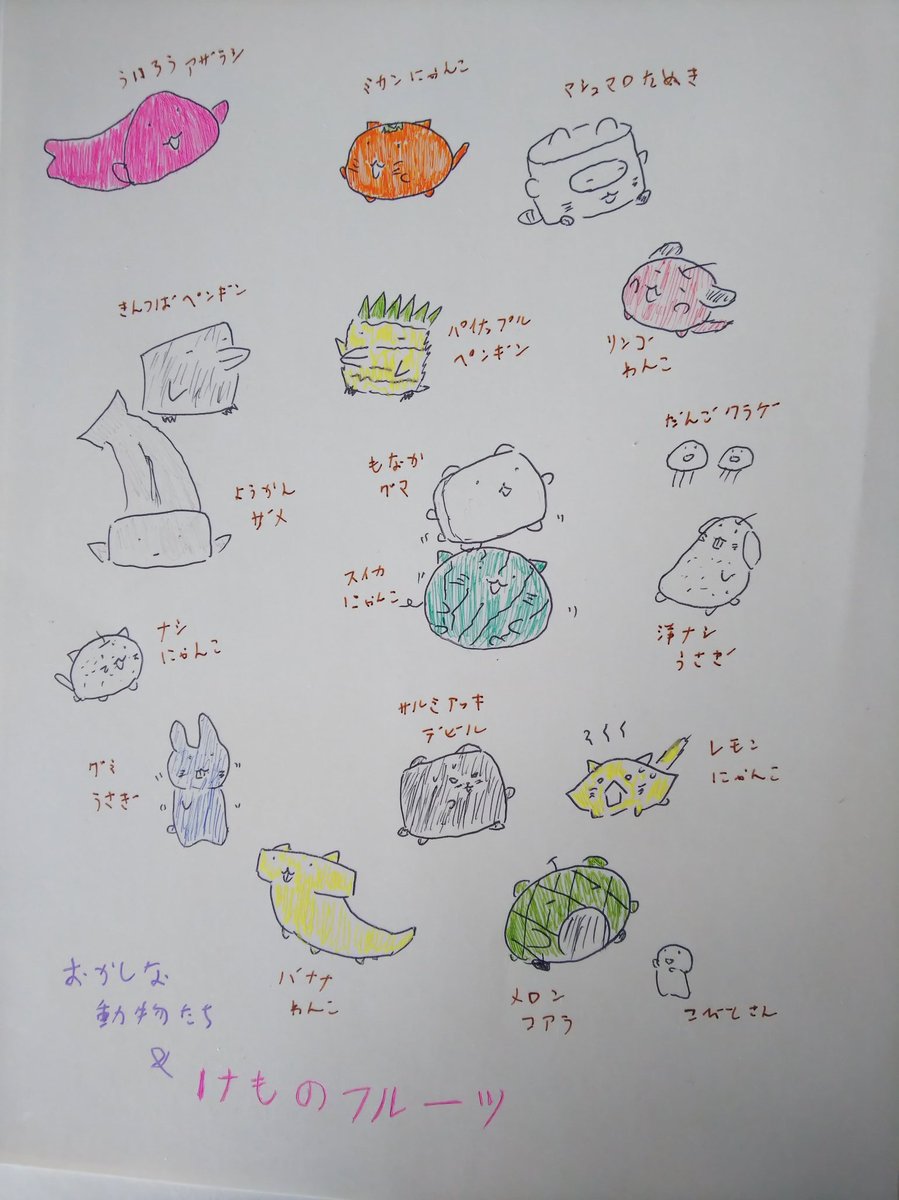 ういろうアザラシ
ミカンにゃんこ
マシュマロたぬき
きんつばペンギン
パイナップル
ペンギン
リンゴ
わんこ
ようかん
ザメ
もなか
グマ
だんごクラゲー
スイカ
にゃんこ
洋ナシ
うさぎ
ナシ
にゃんこ
グミ
うさぎ
サルミアッキ
デビル
レモン
にゃんこ
バナナ
わんこ
メロン
コアラ
こびとさん
おかしな
動物たち
&
けものフルーツ